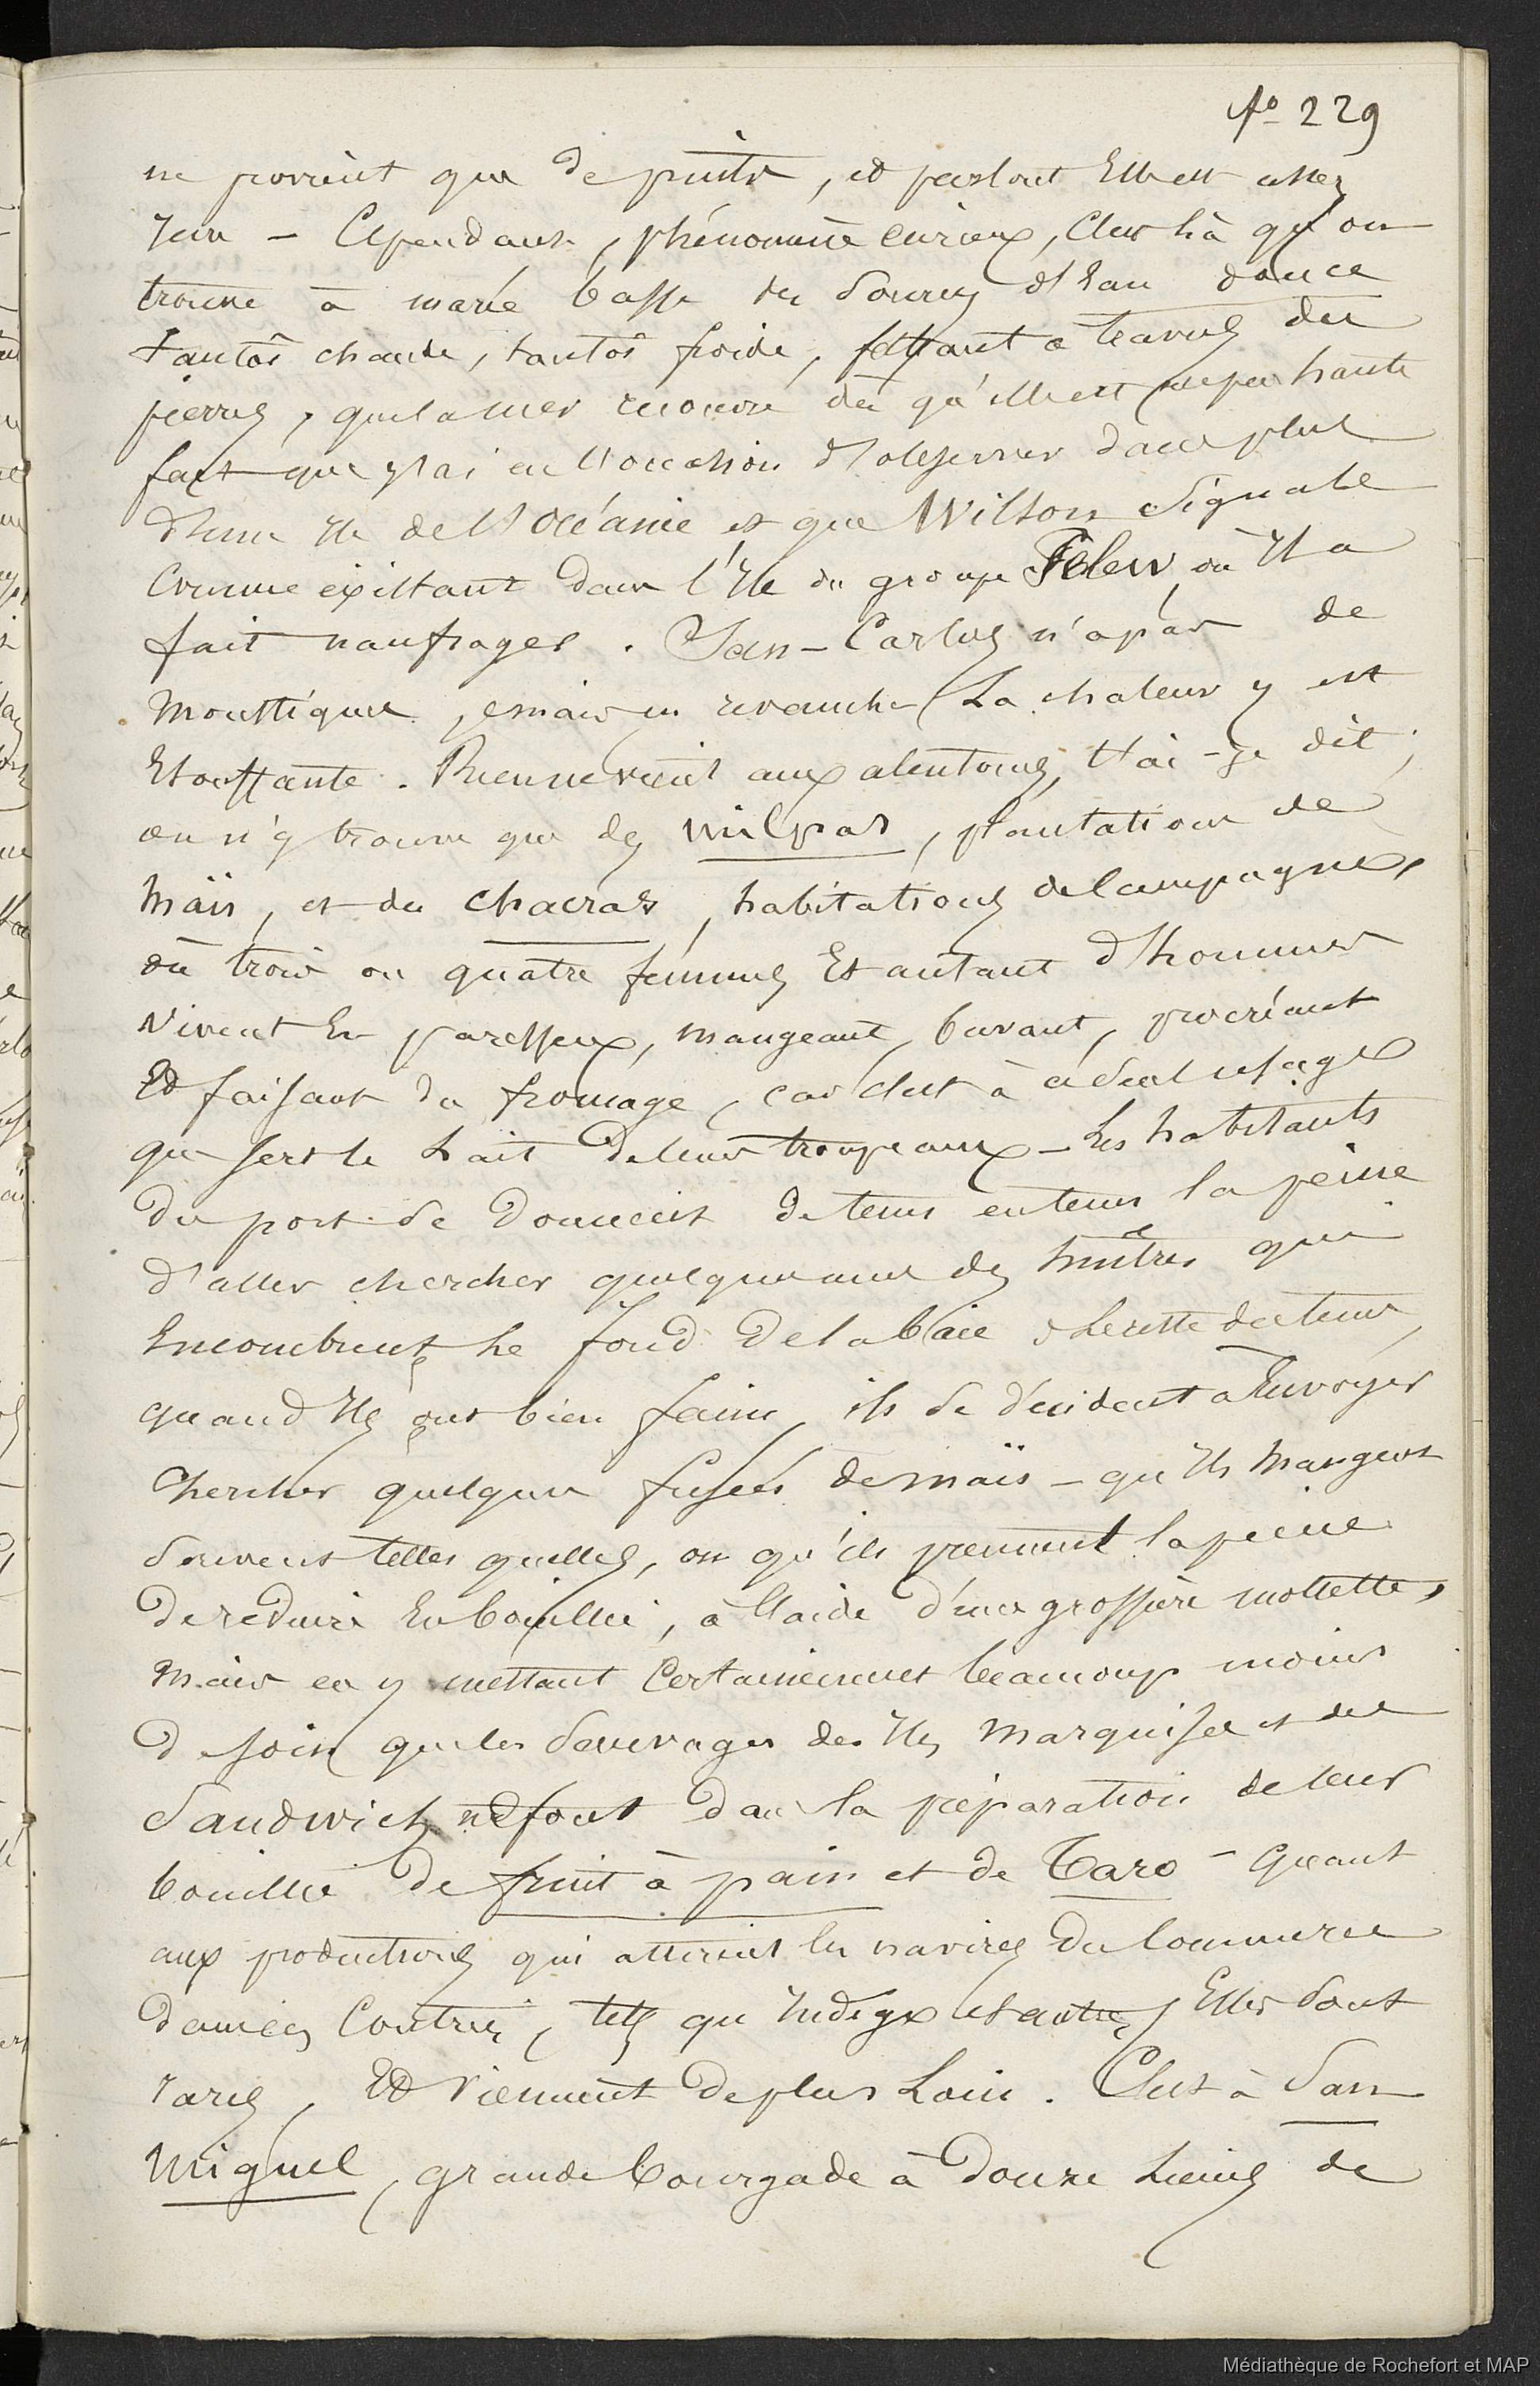 fo 229
ne provient que de puits, et partout Elle est assez
rare – Cependant, phénomène curieux, C'est là qu'on
trouve à marée basse des Sources d'Eau douce
tantôt chaude, tantôt froide, filtrant à travers des
pierres, que la mer recouvre dès qu'elle est un peu haute
fait que j'ai eu l'occasion d'observer dans plus
d'une Ile de l'Océanie et que Wilson Signale
Comme existant dans l'Ile du groupe Pelew, où Il a
fait naufrages. San-Carlos n'a pas de
moustiques, mais en revanche La chaleur y est
Etouffante. Rien ne vient aux alentours, t'ai-je dit;
on n'y trouve que des milpas, plantations de
Maïs, et des chacras, habitations de Campagne,
où trois ou quatre femmes Et autant d'hommes
Vivent En paresseux, mangeant, buvant, procréant
Et faisant du fromage, car c'est à ce seul usage
que sert le Lait de leurs troupeaux – Les habitants
du port se donnent de tems en tems la peine
d'aller chercher quelques unes des huitres qui
Encombrent le fond de la baie & le reste du tems,
quand Ils ont bien faim, ils se décident à Envoyer
Chercher quelques fusées de maïs – qu'Ils Mangent
Souvent telles quelles, ou qu'ils prennent la peine
de réduire En bouillie, à l'aide d'une grossière mollette,
Mais en y mettant Certainement beaucoup moins
de soin que les Sauvages des Iles Marquises et des
Sandwich ne font dans la préparation de leur
bouillie de fruit à pain et de Taro – Quant
aux productions qui attirent les navires du Commerce
dans ces Contrées, tels que Indigo et autres, Elles Sont
rares, Et Viennent de plus Loin. C'est à San
Miguel, grande bourgade à Douze Lieues de
Médiathèque de Rochefort et MAP